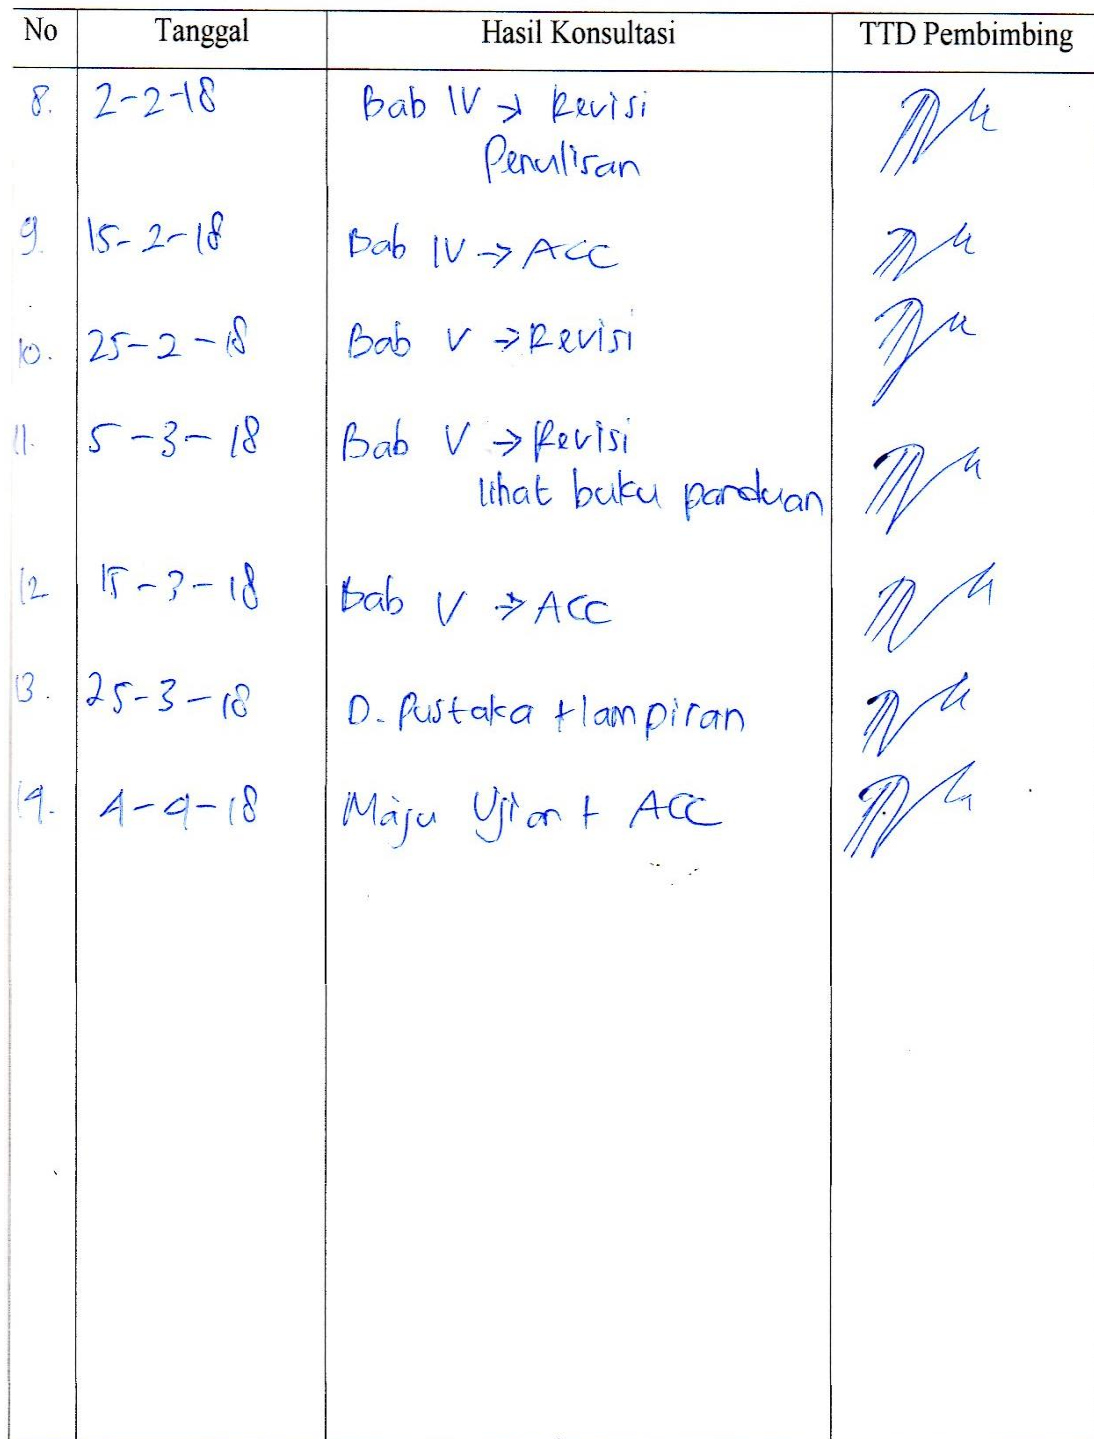 No Tanggal Hasil Konsultasi TTD Pembimbing
8. 2-2-18 Bab IV → Revisi
Penulisan
9. 15-2-18 Bab IV → ACC
10. 25-2-18 Bab V → Revisi
11. 5-3-18 Bab V → Revisi
lihat buku panduan
12 15-3-18 Bab V → ACC
13. 25-3-18 D. Pustaka + lampiran
14. 4-4-18 Maju Ujian + ACC